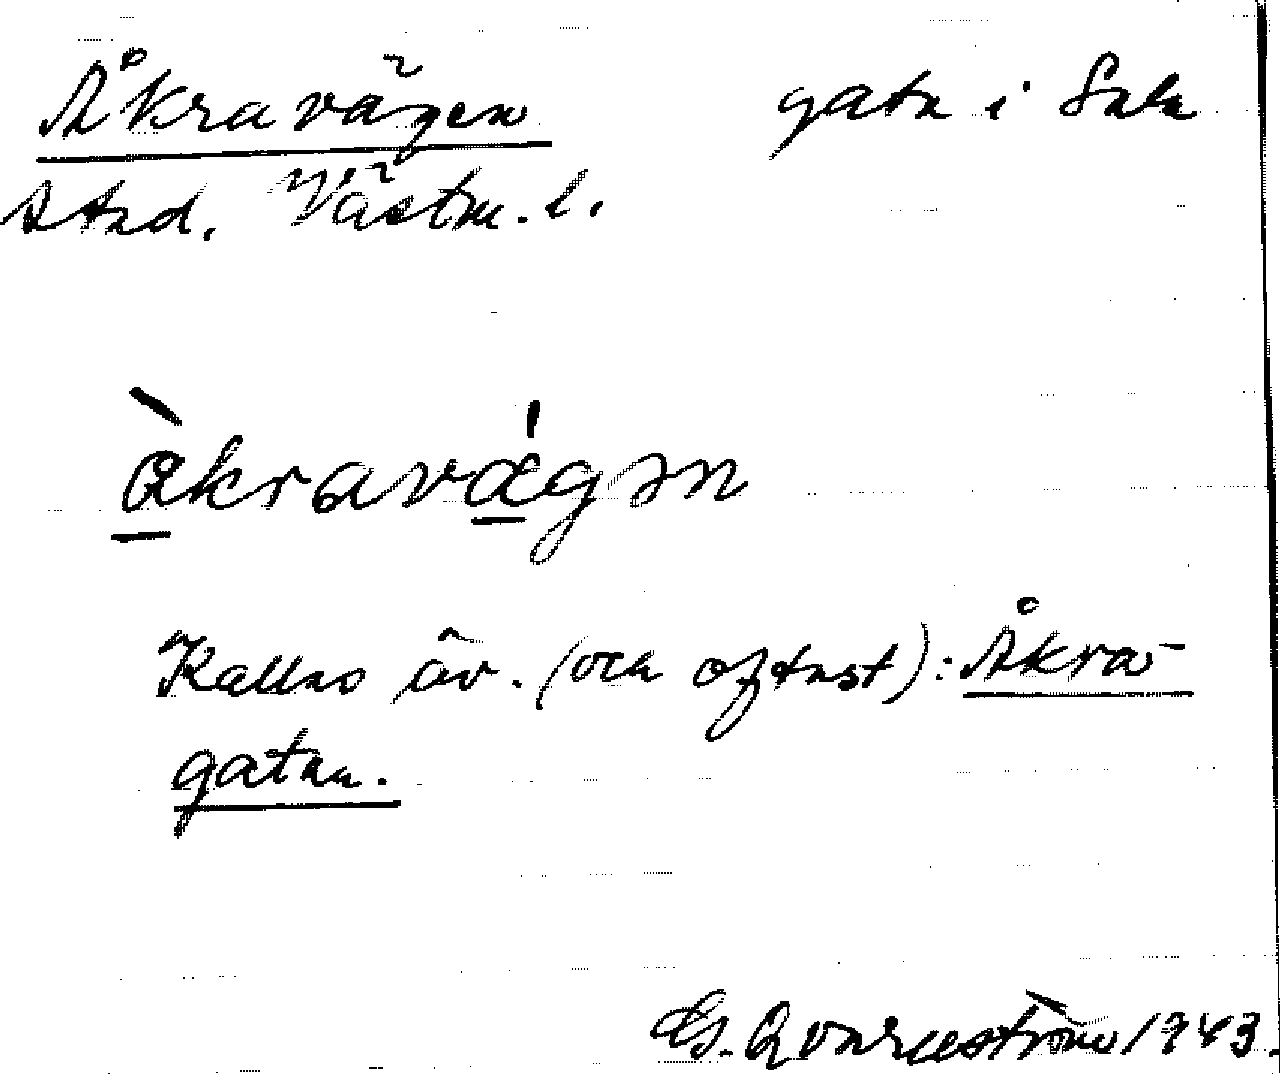 Åkravägen gata i Sala
stad. Västm. l.
àkravágən
Kallas äv. (och oftast): Åkra-
gatan.
G. Qvarnström 1943.